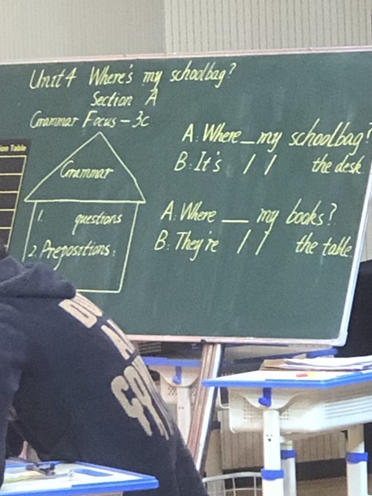 Unit 4 Where's my schoolbag?
Section A
Grammar Focus - 3c
Grammar
1. questions
2. Prepositions:
A: Where __ my schoolbag?
B: It's / / the desk
A: Where ___ my books?
B: They're / / the table.
ion Table